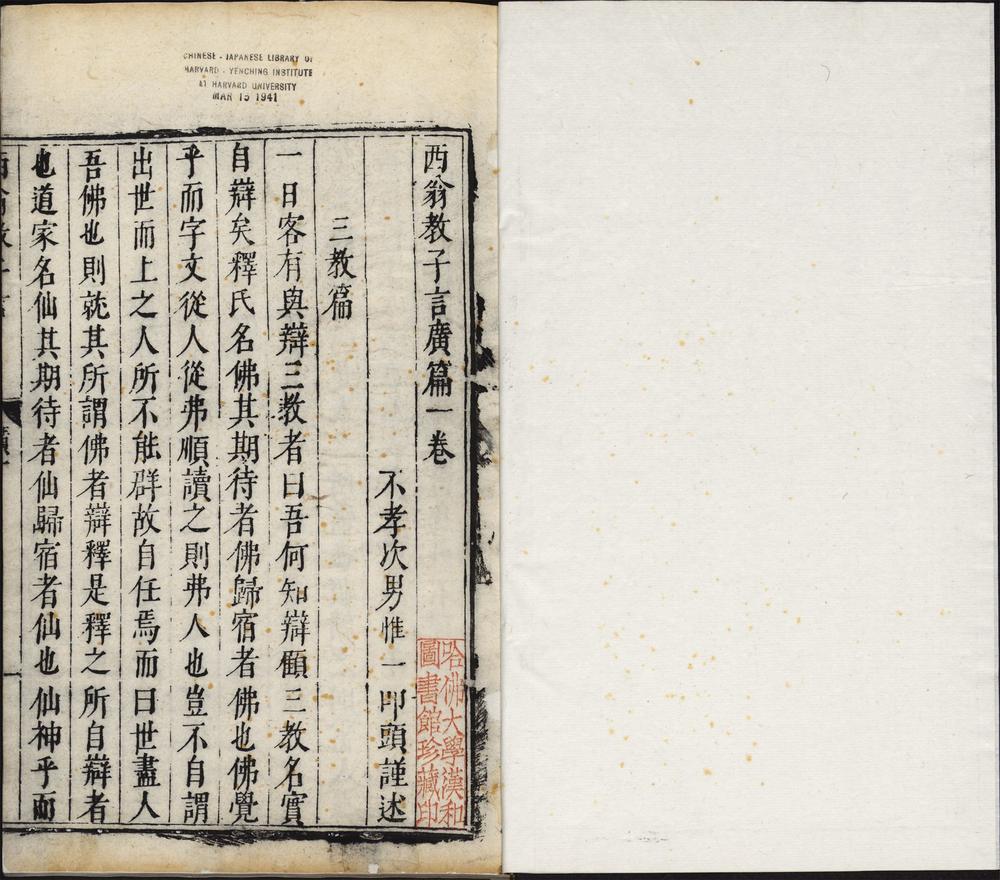 CHINESE - JAPANESE LIBRARY OF
HARVARD - YENCHING INSTITUTE
AT HARVARD UNIVERSITY
MAR 15 1941
西翁教子言廣篇一卷
哈佛大學漢和
圖書館珍藏印
不孝次男惟一叩頭謹述
三教篇
一日客有與辯三教者曰吾何知辯顧三教名實
自辯矣釋氏名佛其期待者佛歸宿者佛也佛覺
乎而字文從人從弗順讀之則弗人也豈不自謂
出世而上之人所不能群故自任焉而曰世盡人
吾佛也則就其所謂佛者辯釋是釋之所自辯者
也道家名仙其期待者仙歸宿者仙也仙神乎而